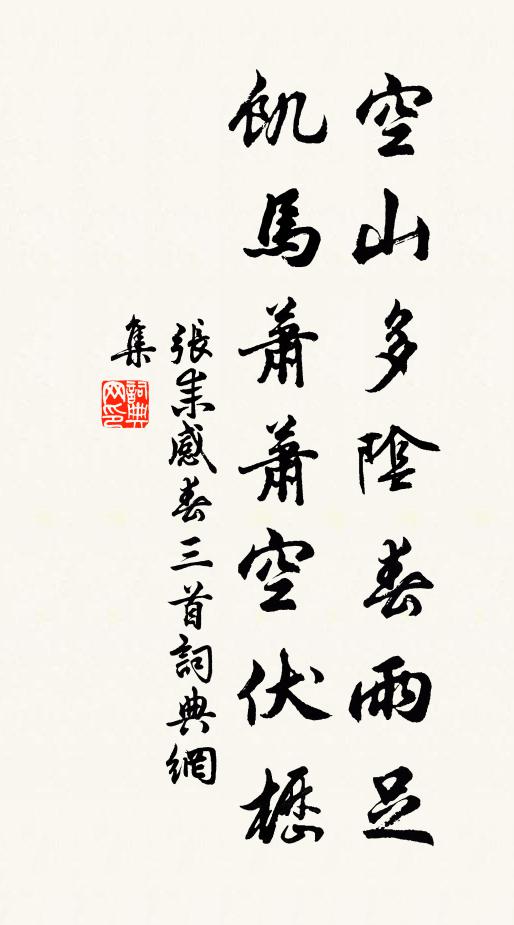 空山多陰春雨足
飢馬蕭蕭空伏櫪
張耒感春三首詞典網
集
詞典
网印